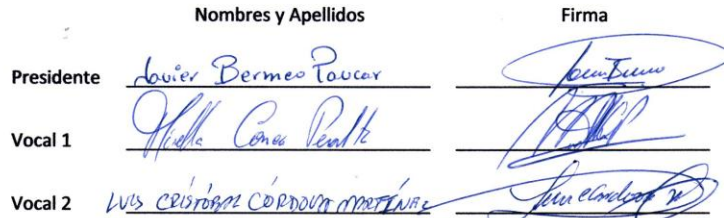 Nombres y Apellidos Firma
Presidente Javier Bermeo Paucar
Vocal 1 Mirella Correa Peralta
Vocal 2 LUIS CRISTÓBAL CÓRDOVA MARTÍNEZ